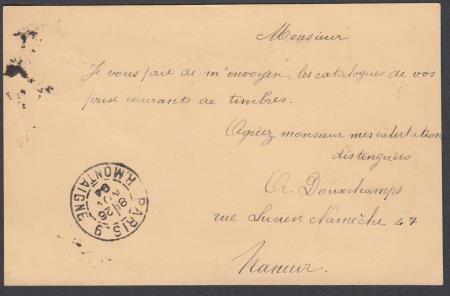 Monsieur
Je vous prie de m'envoyer les catalogues de vos
prix courants de timbres.
Agréez monsieur mes salutations
distinguées
A. Douxchamps
rue Lucien Namêche 47
Namur.
PARIS - 9
R. MONTAIGNE
8E
26
94